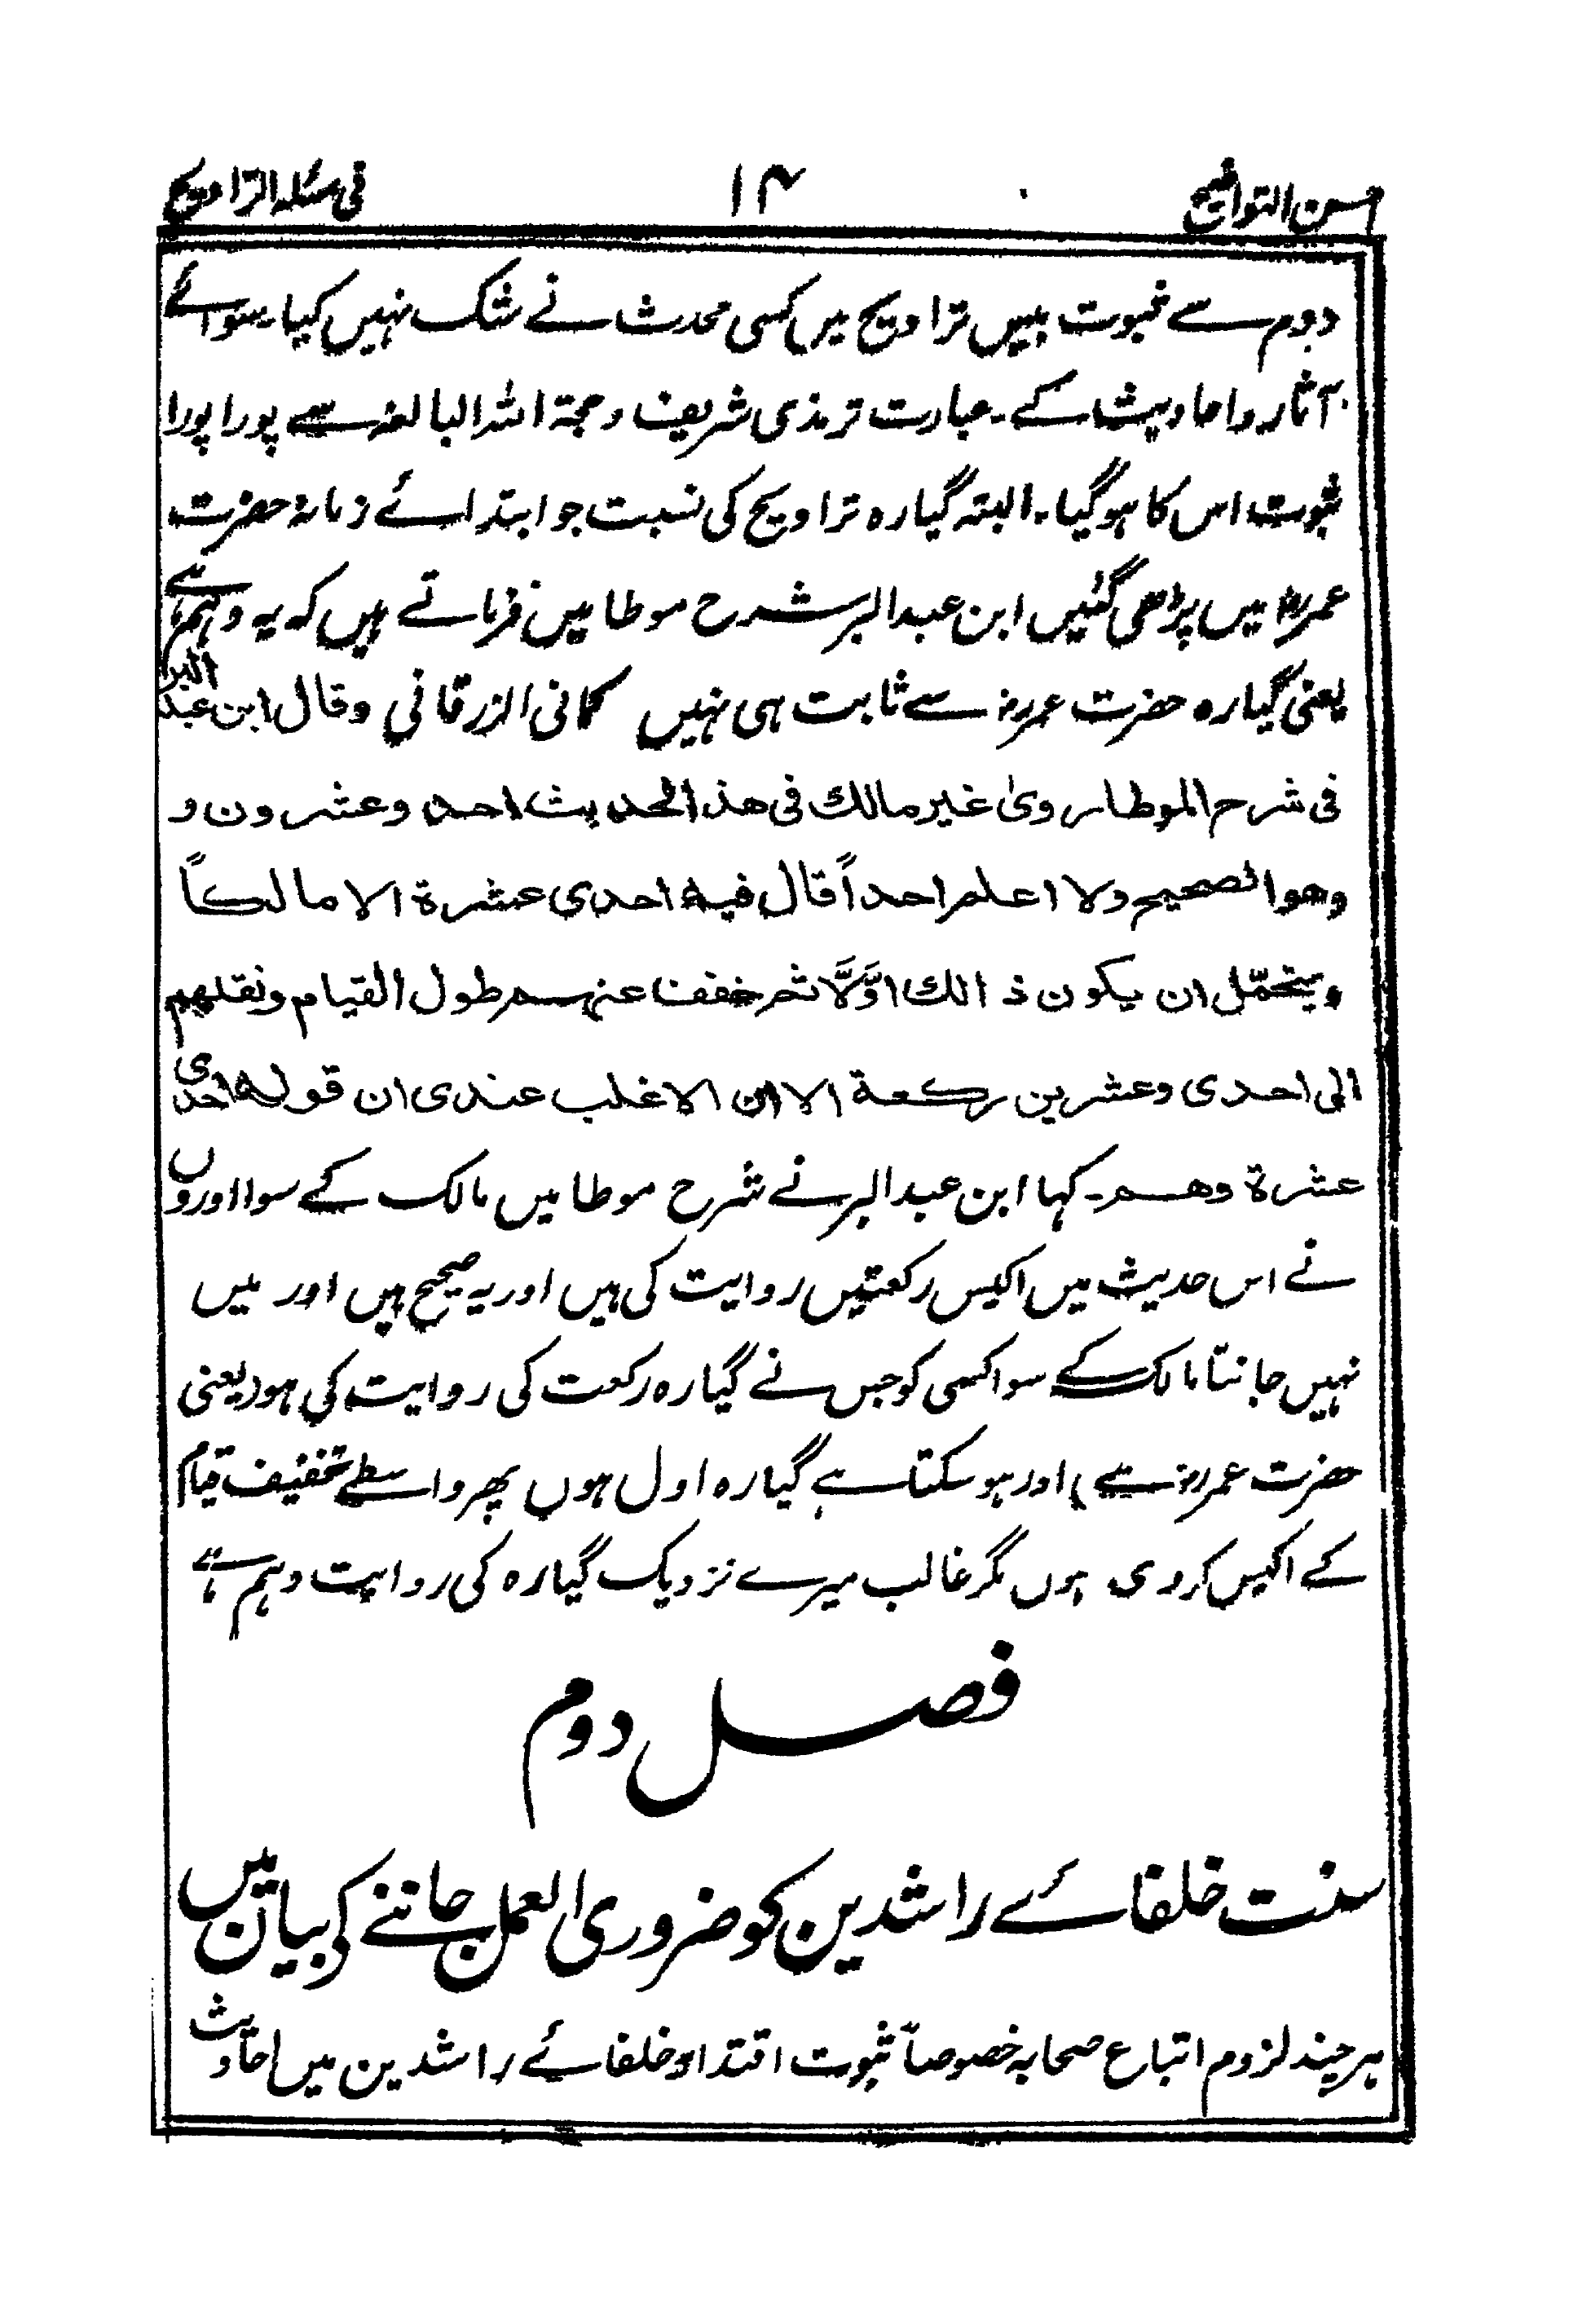 احسن التواضیح ۱۴ فی مسئلہ التراویح
دوم سے ثبوت بیس تراویح میں کسی محدث نے شک نہیں کیا۔ سوائے
آثار و احادیث کے۔ عبارت ترمذی شریف و حجۃ اللہ البالغہ سے پورا پورا
ثبوت اس کا ہوگیا۔ البتہ گیارہ تراویح کی نسبت جو ابتدائے زمانہ حضرت
عمرؓ میں پڑھی گئیں ابن عبدالبر شرح موطا میں فرماتے ہیں کہ یہ وہم ہے
یعنی گیارہ حضرت عمرؓ سے ثابت ہی نہیں کمافی الزرقانی وقال ابن عبد البر
فی شرح الموطا روی غیر مالك فی هذا الحدیث احد وعشرون و
وهو الصحیح ولا اعلم احداً قال فیه احدی عشرة الا مالکاً
ویحتمل ان یکون ذالك اوَّلًا ثم خففنا عنهم طول القیام ونقلهم
الی احدی وعشرین رکعة الا ان الاغلب عندی ان قوله احدی
عشرة وهم۔ کہا ابن عبدالبر نے شرح موطا میں مالک کے سوا اوروں
نے اس حدیث میں اکیس رکعتیں روایت کی ہیں اور یہ صحیح ہیں اور میں
نہیں جانتا مالک کے سوا کسی کو جس نے گیارہ رکعت کی روایت کی ہو (یعنی
حضرت عمرؓ سے) اور ہو سکتا ہے گیارہ اول ہوں پھر واسطے تخفیف قیام
کے اکیس کردی ہوں مگر غالب میرے نزدیک گیارہ کی روایت وہم ہے
فصل دوم
سنت خلفائے راشدین کو ضروری العمل جاننے کی بیان میں
ہر چند لزوم اتباع صحابہ خصوصاً ثبوت اقتداء خلفائے راشدین میں احادیث